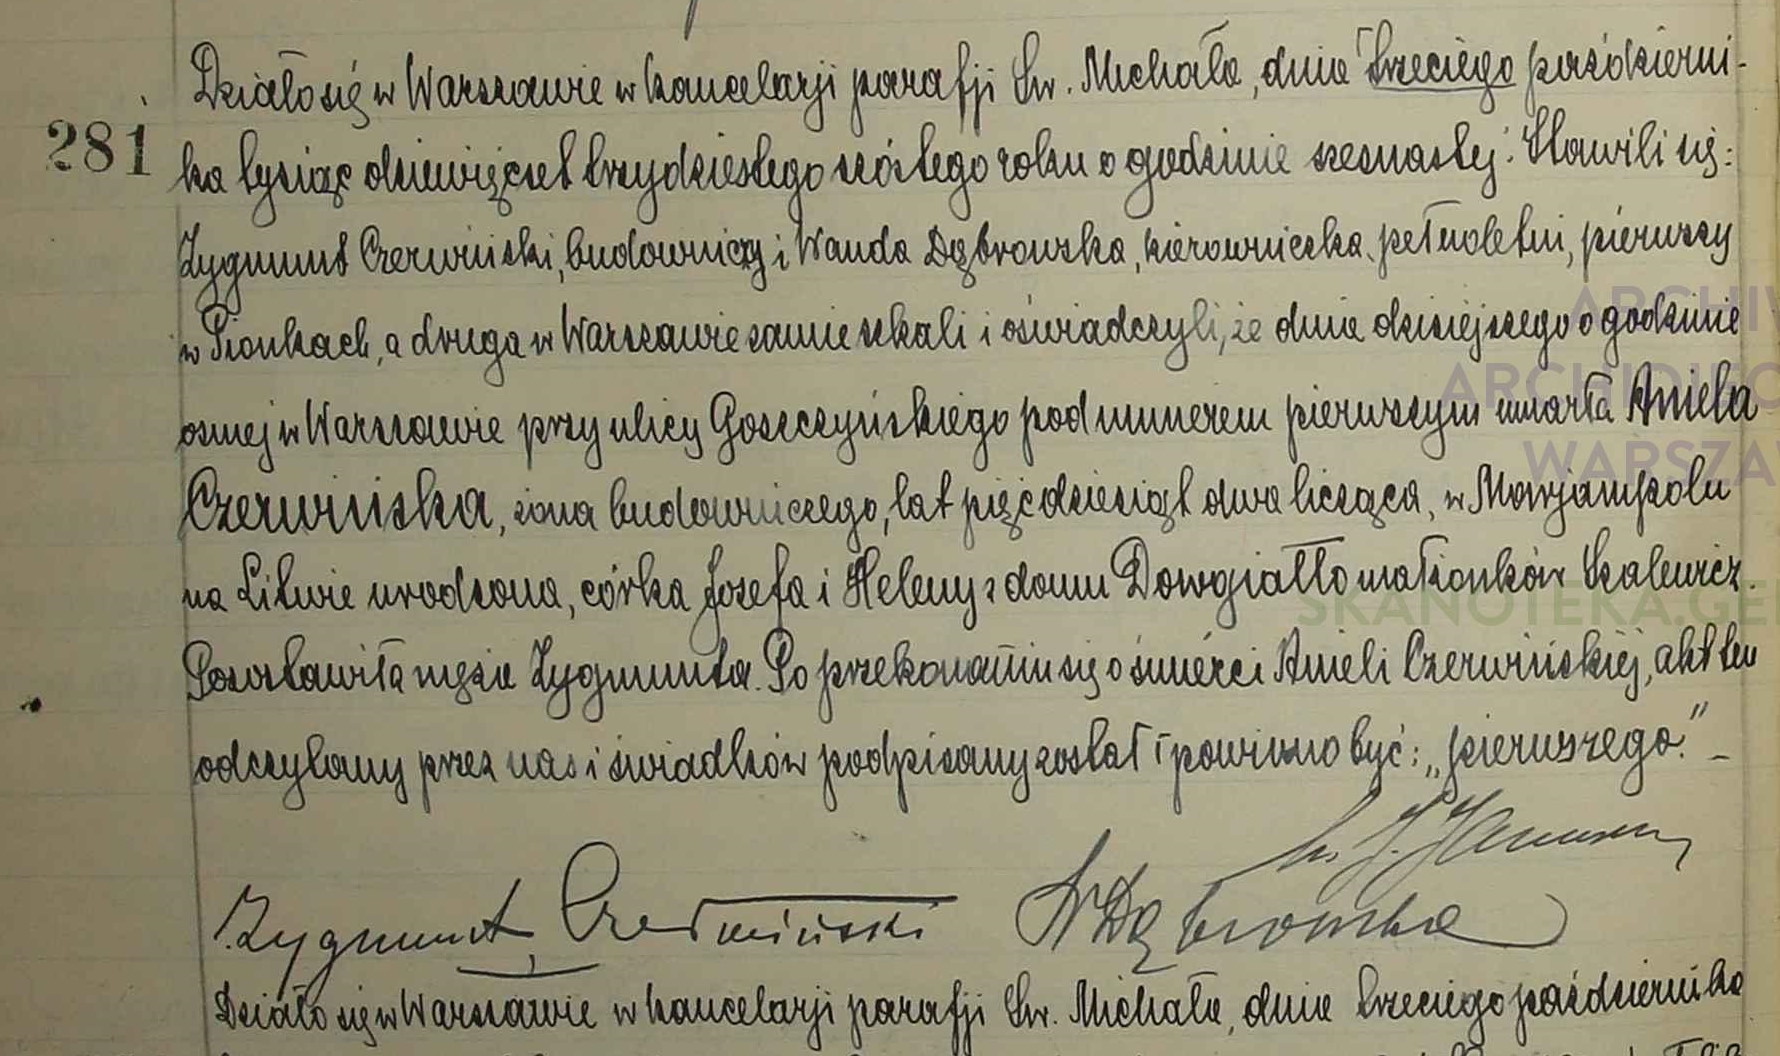 Działo się w Warszawie w kancelarji parafji Św. Michała, dnia ⌈trzeciego październi-
281
ka tysiąc dziewięćset trzydziestego szóstego roku o godzinie szesnastej. Stawili się:
Zygmunt Czerwiński, budowniczy i Wanda Dąbrowska, kierowniczka, pełnoletni, pierwszy
w Pionkach, a druga w Warszawie zamieszkali i oświadczyli, że dnia dzisiejszego o godzinie
ósmej w Warszawie przy ulicy Goszczyńskiego pod numerem pierwszym umarła Aniela
Czerwińska, żona budowniczego, lat pięćdziesiąt dwa licząca, w Marjampolu
na Litwie urodzona, córka Józefa i Heleny z domu Dowgiałło małżonków Szalewicz.
Pozostawiła męża Zygmunta. Po przekonaniu się o śmierci Anieli Czerwińskiej, akt ten
odczytany przez nas i świadków podpisany został ⌈powinno być: „pierwszego." –
Zygmunt Czerwiński WDąbrowska
Działo się w Warszawie w kancelarji parafji Św. Michała, dnia trzeciego października
SKANOTEKA.GE